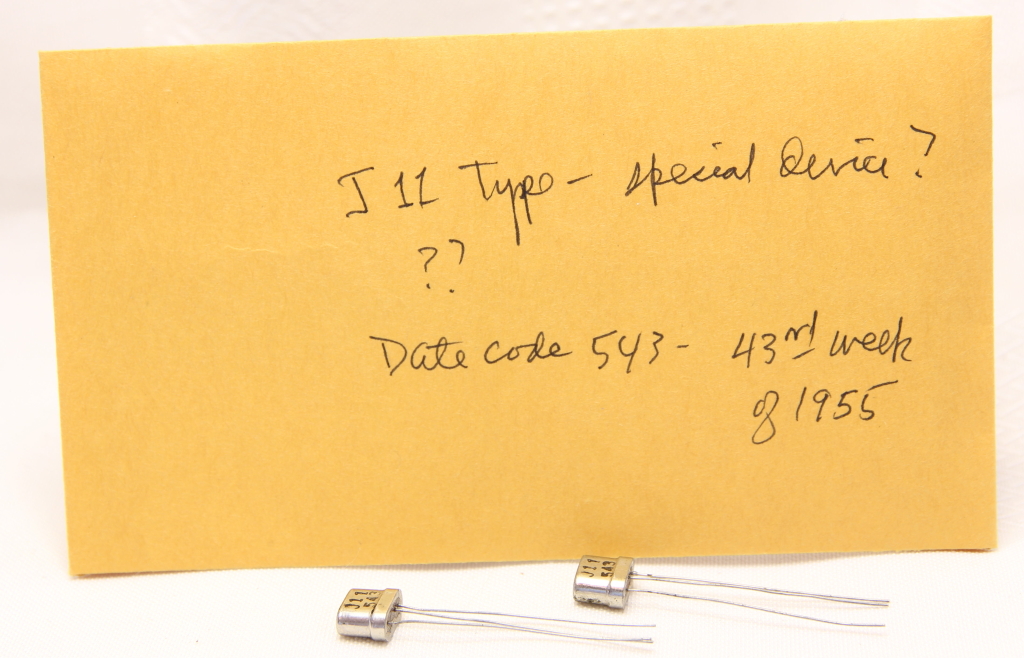 J 11 Type - special device?
??
Date code 543 - 43rd week
of 1955
J11
543
J11
543